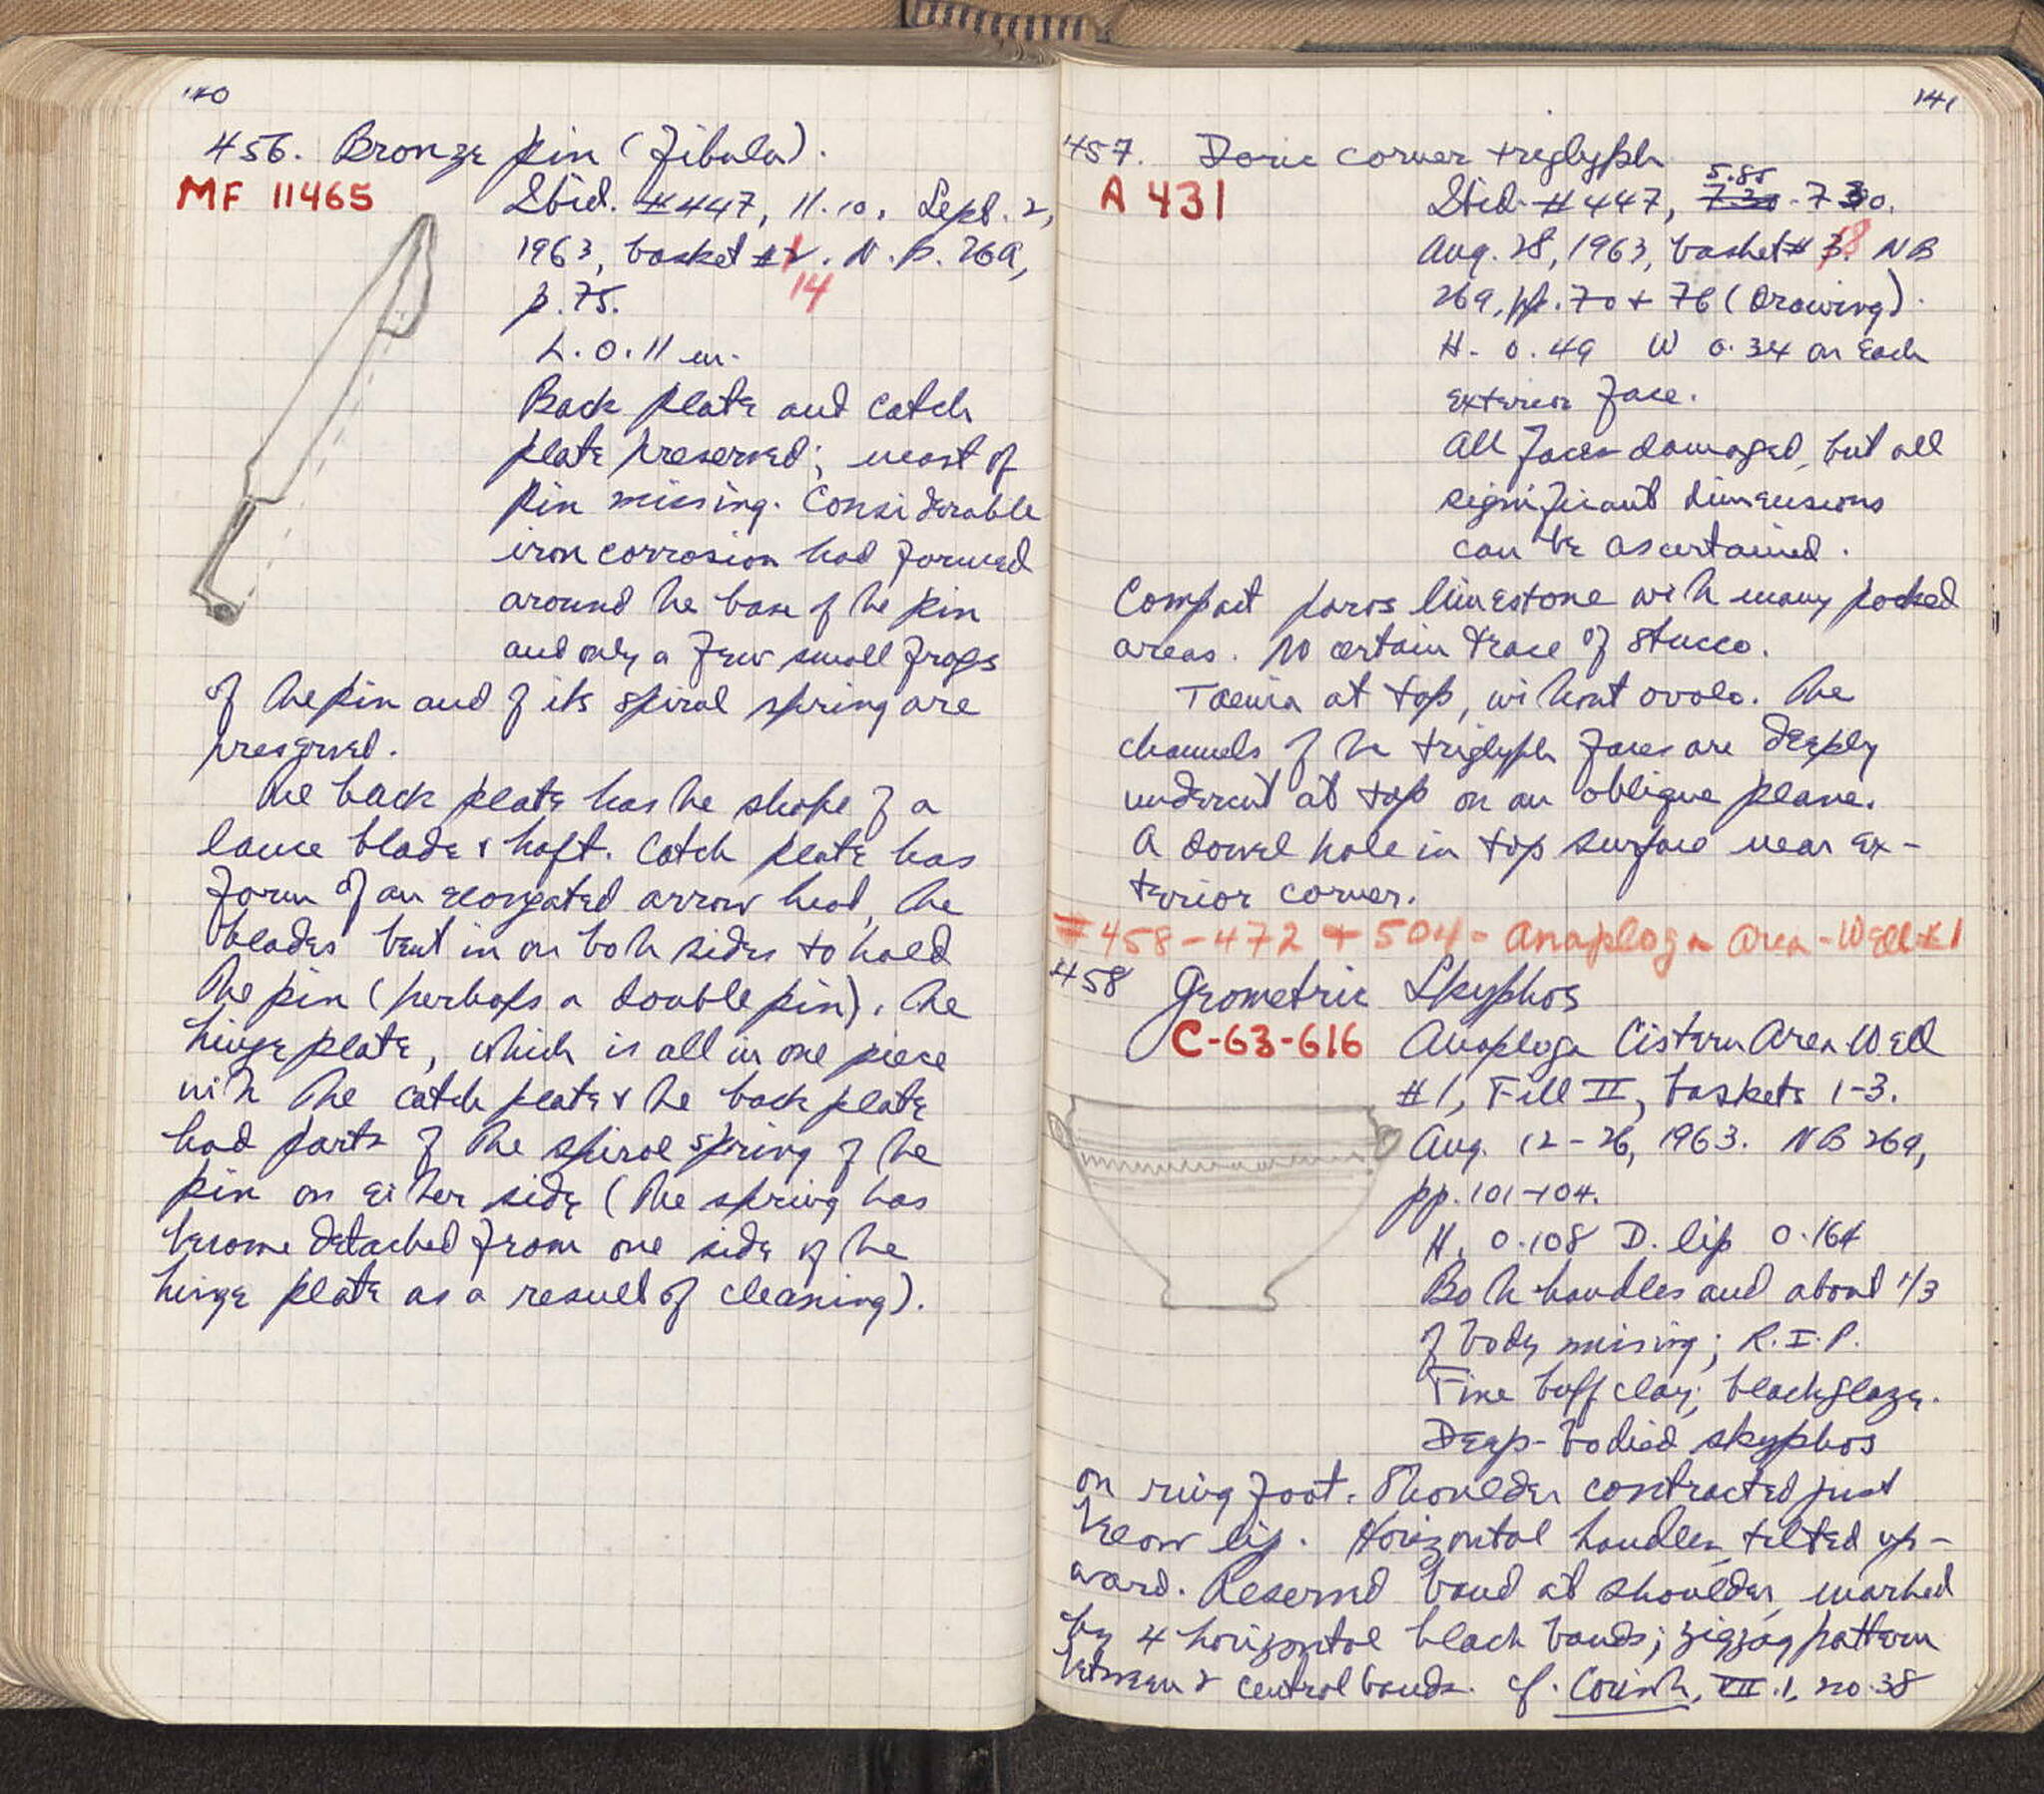 140
456. Bronze pin (fibula).
MF 11465
Ibid. #447, 11.10, Sept. 2,
1963, basket #2. N.B. 269,
14
p. 75.
L. 0.11 m.
Back plate and catch
plate preserved; most of
pin missing. Considerable
iron corrosion had formed
around the base of the pin
and only a few small frags
of the pin and of its spiral spring are
preserved.
The back plate has the shape of a
lance blade & haft. Catch plate has
form of an elongated arrow head, the
blades bent in on both sides to hold
the pin (perhaps a double pin). The
hinge plate, which is all in one piece
with the catch plate & the back plate
had parts of the spiral spring of the
pin on either side (the spring has
become detached from one side of the
hinge plate as a result of cleaning).
141
457. Doric corner triglyph
A 431
5.85
Ibid. #447, 7.30 - 7.30.
Aug. 28, 1963, basket # 3. 18 NB
269, pp. 70 + 76 (Drawing).
H. 0.49 W 0.34 on each
exterior face.
All faces damaged, but all
significant dimensions
can be ascertained.
Compact poros limestone with many pocked
areas. No certain trace of stucco.
Taenia at top, without ovolo. The
channels of the triglyph faces are deeply
undercut at top on an oblique plane.
A dowel hole in top surface near ex-
terior corner.
#458-472 + 504 - Anaploga Area - Well #1
458 Geometric Skyphos
C-63-616 Anaploga Cistern Area Well
#1, Fill II, baskets 1-3.
Aug. 12-26, 1963. NB 269,
pp. 101-104.
H. 0.108 D. lip 0.164
Both handles and about 1/3
of body missing; R.I.P.
Fine buff clay; black glaze.
Deep-bodied skyphos
on ring foot. Shoulder contracted just
below lip. Horizontal handles, tilted up-
ward. Reserved band at shoulder, marked
by 4 horizontal black bands; zigzag pattern
between 2 central bands. cf. Corinth, VII.1, no. 38